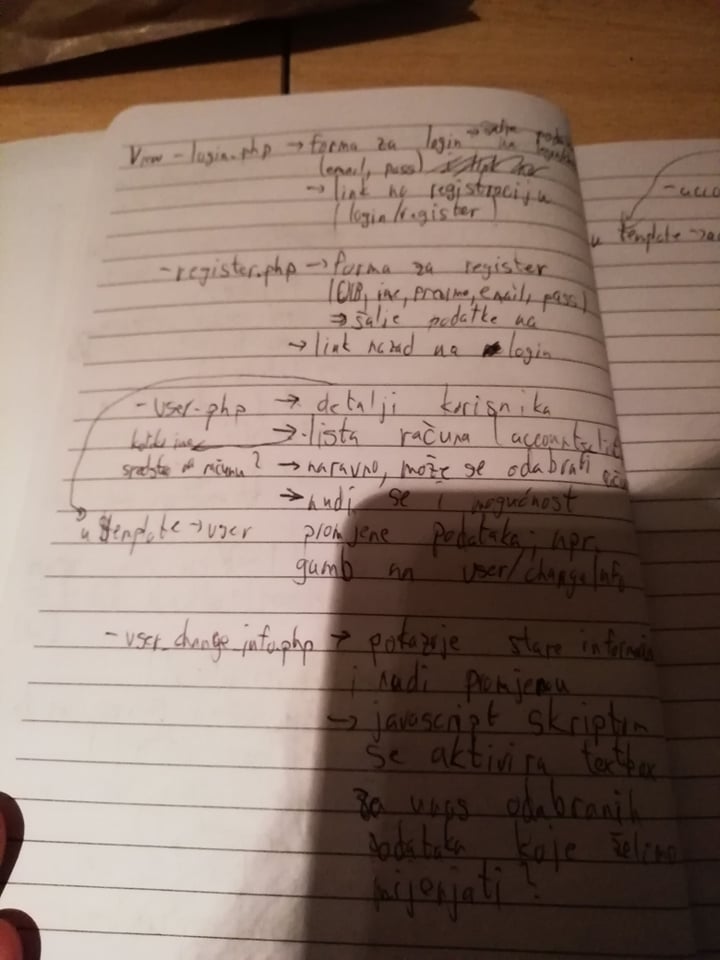 View - login.php → forma za login → šalje podatke na
(email, pass)
→ link na registraciju
(login/register)
- register.php → forma za register
(OIB, ime, prezime, email, pass)
⇒ šalje podatke na
→ link nazad na login
- user.php → detalji korisnika
→ lista računa (accountsList
sredstva na računu? → naravno, može se odabrati
→ nudi se i mogućnost
u template → user promjene podataka; npr.
gumb na user/changeInfo
- user_change_info.php → pokazuje stare
i nudi promjenu
→ javascript skriptom
se aktivira textbox
za unos odabranih
podataka koje želimo
mijenjati?
- acco
u template →